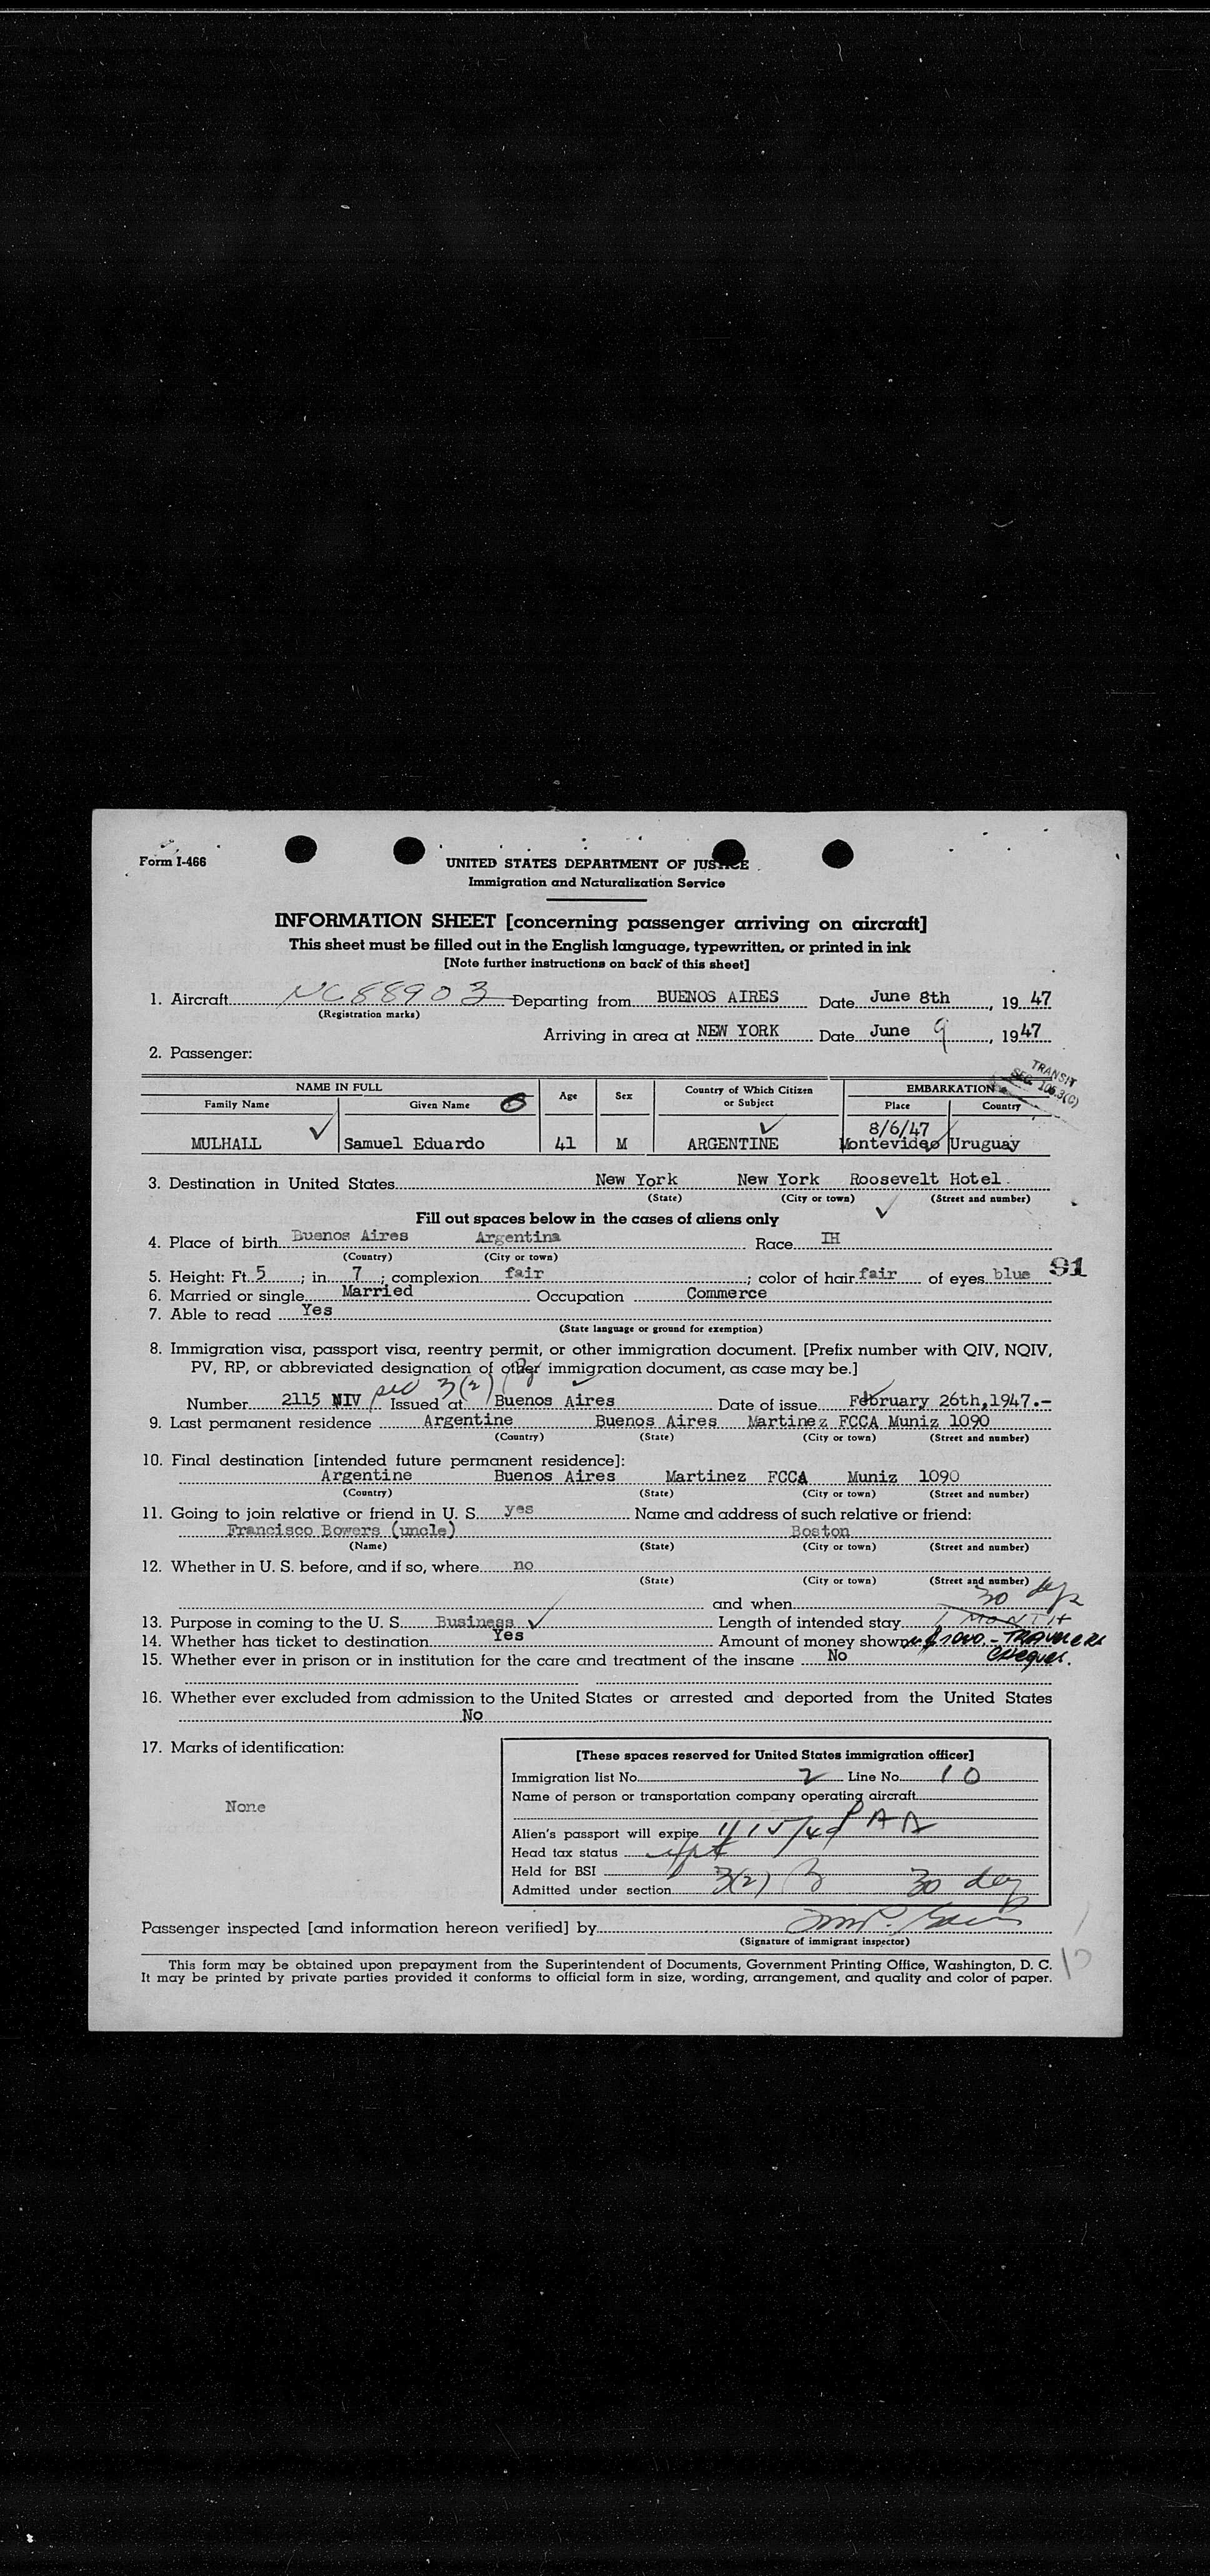 Form I-466
UNITED STATES DEPARTMENT OF JUSTICE
Immigration and Naturalization Service
INFORMATION SHEET [concerning passenger arriving on aircraft]
This sheet must be filled out in the English language, typewritten, or printed in ink
[Note further instructions on back of this sheet]
1. Aircraft NC88903 Departing from BUENOS AIRES Date June 8th, 1947
(Registration marks)
Arriving in area at NEW YORK Date June 9, 1947
2. Passenger:
TRANSIT
SEC. 106.3(C)
NAME IN FULL Age Sex Country of Which Citizen or Subject EMBARKATION
Family Name Given Name Place Country
8/6/47
MULHALL Samuel Eduardo 41 M ARGENTINE Montevideo Uruguay
3. Destination in United States New York New York Roosevelt Hotel
(State) (City or town) (Street and number)
Fill out spaces below in the cases of aliens only
4. Place of birth Buenos Aires Argentina Race IH
(Country) (City or town)
5. Height: Ft. 5; in 7; complexion fair; color of hair fair of eyes blue 91
6. Married or single Married Occupation Commerce
7. Able to read Yes
(State language or ground for exemption)
8. Immigration visa, passport visa, reentry permit, or other immigration document. [Prefix number with QIV, NQIV,
PV, RP, or abbreviated designation of other immigration document, as case may be.]
Number 2115 NIV sec 3(2) Issued at Buenos Aires Date of issue February 26th, 1947.-
9. Last permanent residence Argentine Buenos Aires Martinez FCCA Muniz 1090
(Country) (State) (City or town) (Street and number)
10. Final destination [intended future permanent residence]:
Argentine Buenos Aires Martinez FCCA Muniz 1090
(Country) (State) (City or town) (Street and number)
11. Going to join relative or friend in U. S. yes Name and address of such relative or friend:
Francisco Bowers (uncle) Boston
(Name) (State) (City or town) (Street and number)
12. Whether in U. S. before, and if so, where no
(State) (City or town) (Street and number)
and when
30 dys
13. Purpose in coming to the U. S. Business Length of intended stay 1 MONTH
14. Whether has ticket to destination Yes Amount of money shown $1000.- TRAVELERS
Cheques.
15. Whether ever in prison or in institution for the care and treatment of the insane No
16. Whether ever excluded from admission to the United States or arrested and deported from the United States
No
17. Marks of identification:
None
[These spaces reserved for United States immigration officer]
Immigration list No. 2 Line No. 10
Name of person or transportation company operating aircraft
PAA
Alien's passport will expire 1/15/49
Head tax status
Held for BSI
Admitted under section 3(2) 30 day
Passenger inspected [and information hereon verified] by
(Signature of immigrant inspector)
This form may be obtained upon prepayment from the Superintendent of Documents, Government Printing Office, Washington, D. C.
It may be printed by private parties provided it conforms to official form in size, wording, arrangement, and quality and color of paper.